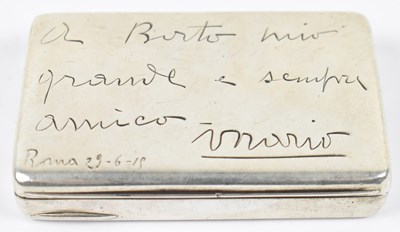 A Berto mio
grande e sempre
amico
Roma 29-6-15